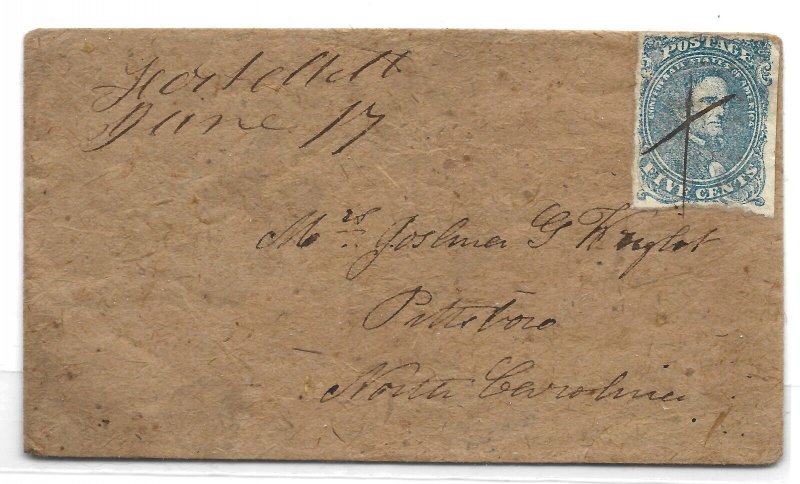 June 17
POSTAGE
CONFEDERATE STATES OF AMERICA
FIVE CENTS
Mrs. Joshua G Wright
Pittsboro
North Carolina